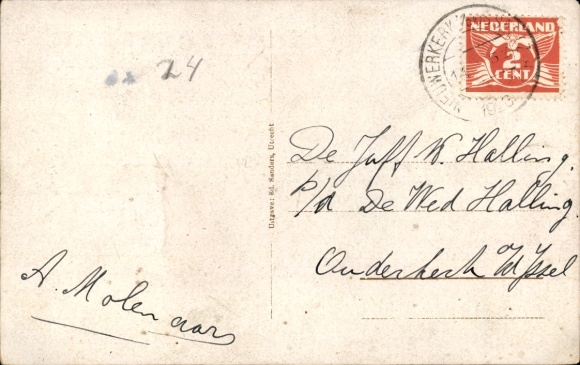 24
NIEUWERKERK
NEDERLAND
2
CENT
De Juff N. Halling.
p/a De Wed Halling.
Ouderkerk a/d IJssel
A. Molenaar
Uitgave: Ed. Sanders, Utrecht